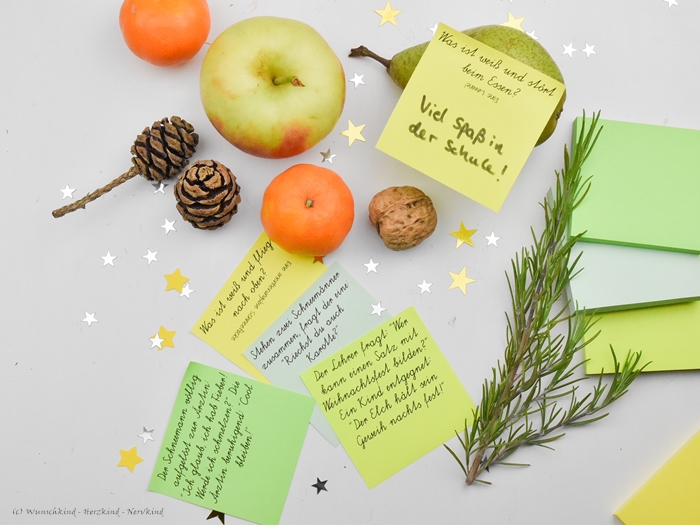 Was ist weiß und stört
beim Essen?
Eine Lawine!
Viel Spaß in
der Schule!
Was ist weiß und fliegt
nach oben?
Stehen zwei Schneemänner
zusammen, fragt der eine
"Riechst du auch
Karotte?"
Der Lehrer fragt: "Wer
kann einen Satz mit
Weihnachtsfest bilden?"
Ein Kind entgegnet:
"Der Elch hält sein
Geweih nachts fest!"
Der Schneemann völlig
aufgelöst zur Ärztin:
"Ich glaub, ich hab Fieber!
Werde ich schmelzen?" Die
Ärztin beruhigend: "Cool
bleiben!"
(c) Wunschkind - Herzkind - Nervkind